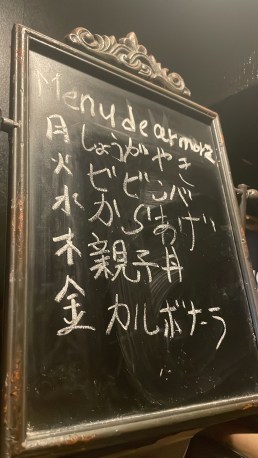 Menu de armore
月 しょうがやき
火 ビビンバ
水 からあげ
木 親子丼
金 カルボナーラ